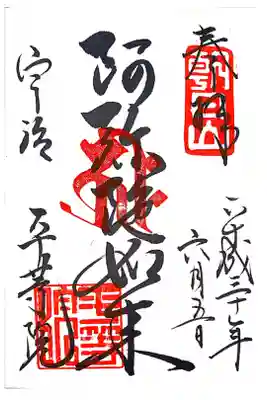 奉拝
平成二十年
六月五日
阿弥陀如来
宇治
平等院